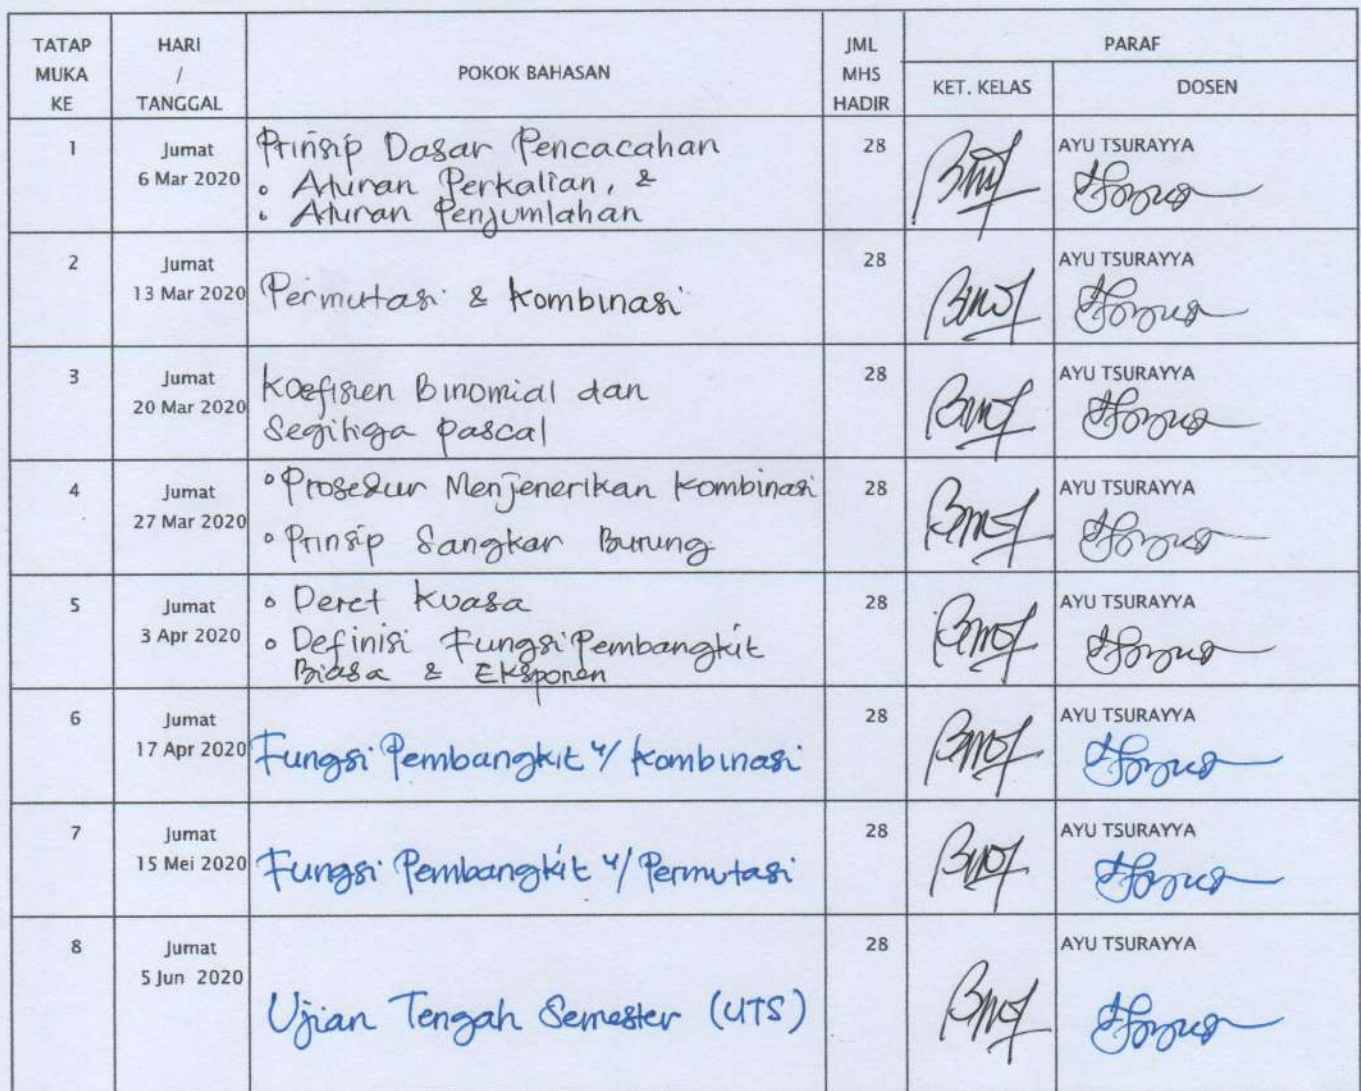 TATAP MUKA KE
HARI / TANGGAL
POKOK BAHASAN
JML MHS HADIR
PARAF
KET. KELAS
DOSEN
1
Jumat
6 Mar 2020
Prinsip Dasar Pencacahan
• Aturan Perkalian, &
• Aturan Penjumlahan
28
AYU TSURAYYA
2
Jumat
13 Mar 2020
Permutasi & Kombinasi
28
AYU TSURAYYA
3
Jumat
20 Mar 2020
Koefisien Binomial dan
Segitiga pascal
28
AYU TSURAYYA
4
Jumat
27 Mar 2020
• Prosedur Menjenerikan Kombinasi
• Prinsip Sangkar Burung
28
AYU TSURAYYA
5
Jumat
3 Apr 2020
• Deret Kuasa
• Definisi Fungsi Pembangkit
Biasa & Eksponen
28
AYU TSURAYYA
6
Jumat
17 Apr 2020
Fungsi Pembangkit u/ Kombinasi
28
AYU TSURAYYA
7
Jumat
15 Mei 2020
Fungsi Pembangkit u/ Permutasi
28
AYU TSURAYYA
8
Jumat
5 Jun 2020
Ujian Tengah Semester (UTS)
28
AYU TSURAYYA